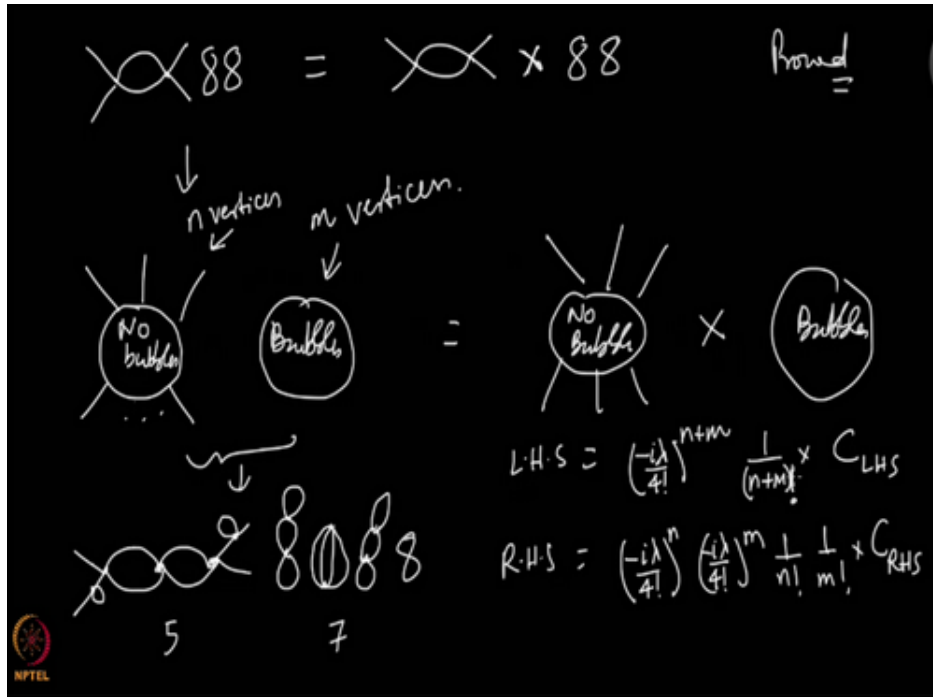 88 = × 88 Proved
n vertices
m vertices.
No bubbles Bubbles = No Bubble × Bubbles
...
L.H.S = (-iλ/4!)^{n+m} 1/(n+m)! × C_{LHS}
R.H.S = (-iλ/4!)^n (-iλ/4!)^m 1/n! 1/m! × C_{RHS}
8
5 7
NPTEL